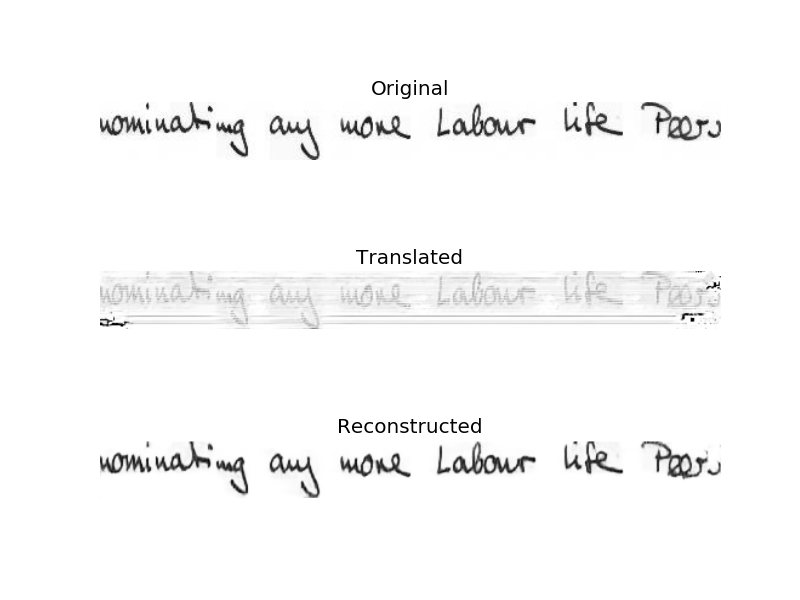 Original
nominating any more Labour life Peers
Translated
nominating any more Labour life Peers
Reconstructed
nominating any more Labour life Peers